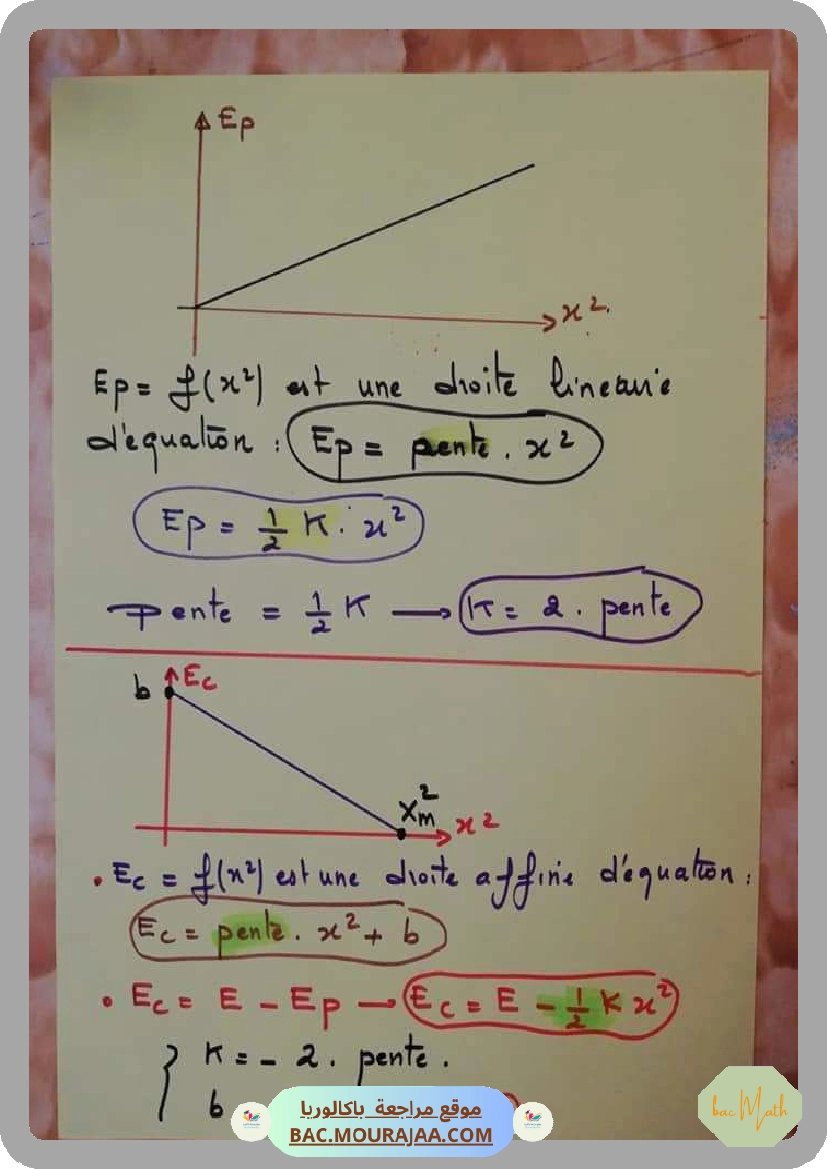 Ep
x².
Ep = f(x²) est une droite lineaire
d'equation : Ep = pente . x²
Ep = 1/2 K . x²
pente = 1/2 K → K = 2 . pente
b Ec
Xm²
x²
• Ec = f(x²) est une droite affine d'equation :
Ec = pente . x² + b
• Ec = E - Ep → Ec = E - 1/2 K x²
} K = - 2 . pente .
b
موقع مراجعة باكالوريا
BAC.MOURAJAA.COM
bac Math